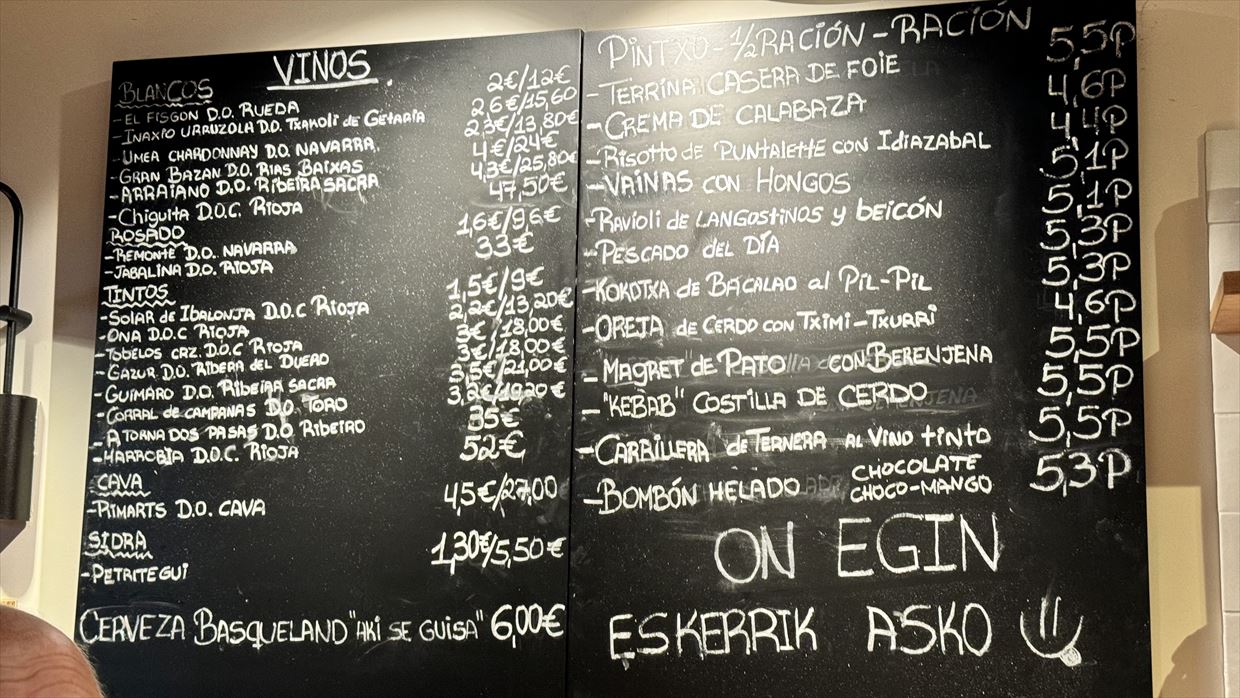 VINOS
BLANCOS
-EL FISGON D.O. RUEDA 2€/12€
-INAXIO URRUZOLA D.O. TXAKOLI de GETARIA 2,6€/15,60
UMEA CHARDONNAY D.O. NAVARRA 2,3€/13,80€
-GRAN BAZAN D.O. RIAS BAIXAS 4€/24€
-ARRAIANO D.O. RIBEIRA SACRA 4,3€/25,80€
-CHIGUITA D.O.C. RIOJA 47,50€
ROSADO
-REMONTE D.O. NAVARRA 1,6€/9,6€
-JABALINA D.O. RIOJA 33€
TINTOS
-SOLAR de IBALONJA D.O.C RIOJA 1,5€/9€
-ONA D.O.C RIOJA 2,2€/13,20€
-TOBELOS CRZ. D.O.C RIOJA 3€/18,00€
-GAZUR D.O. RIBERA DEL DUERO 3€/18,00€
-GUIMARO D.O. RIBEIRA SACRA 3,5€/21,00€
-CORRAL de CAMPANAS D.O. TORO 3,2€/19,20€
-A TORNA DOS PASAS D.O RIBEIRO 35€
-HARROBIA D.O.C. RIOJA 52€
CAVA
-RIMARTS D.O. CAVA 4,5€/27,00
SIDRA
-PETRITEGUI 1,30€/5,50€
CERVEZA BASQUELAND "AKI SE GUISA" 6,00€
PINTXO-1/2RACIÓN-RACIÓN
-TERRINA CASERA DE FOIE 5,5P
-CREMA DE CALABAZA 4,6P
-RISOTTO de PUNTALETTE con IDIAZABAL 4,4P
-VAINAS con HONGOS 5,1P
-RAVIOLI de LANGOSTINOS y beicón 5,1P
-PESCADO del DÍA 5,3P
-KOKOTXA de BACALAO al PIL-PIL 5,3P
-OREJA de CERDO con TXIMI-TXURRI 4,6P
-MAGRET de PATO con BERENJENA 5,5P
-"KEBAB" COSTILLA DE CERDO 5,5P
-CARRILLERA de TERNERA AL VINO tinto 5,5P
-BOMBÓN HELADO CHOCOLATE 5,3P
CHOCO-MANGO
ON EGIN
ESKERRIK ASKO